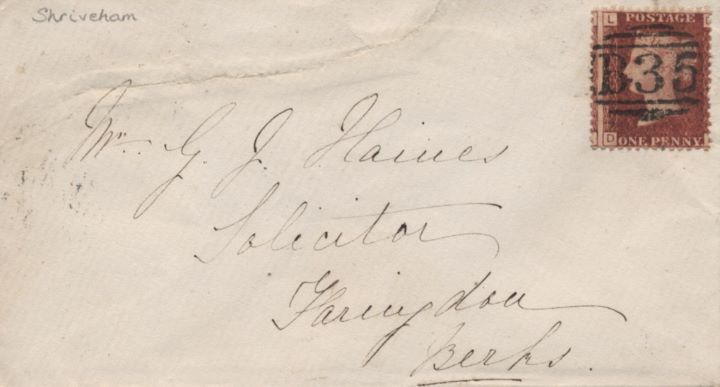 Shriveham
L POSTAGE
B35
D ONE PENNY
Mr. G. J. Haines
Solicitor
Faringdon
Berks.